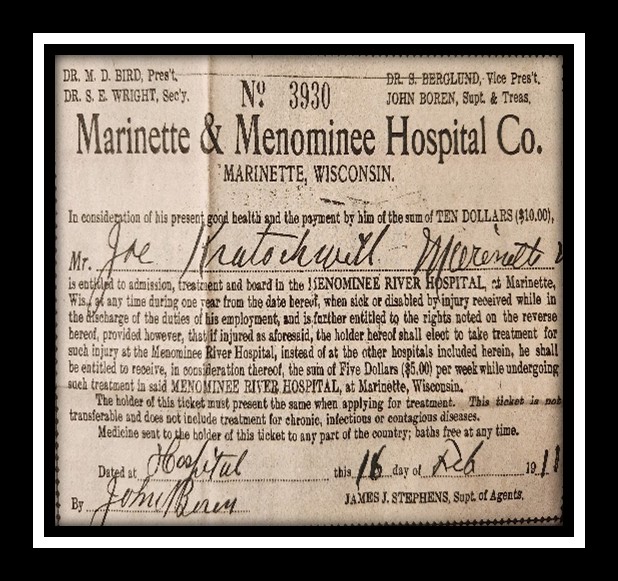 DR. M. D. BIRD, Pres't.
DR. S. BERGLUND, Vice Pres't.
DR. S. E. WRIGHT, Sec'y.
Nº 3930
JOHN BOREN, Supt. & Treas.
Marinette & Menominee Hospital Co.
MARINETTE, WISCONSIN.
In consideration of his present good health and the payment by him of the sum of TEN DOLLARS ($10.00),
Mr. Joe Kratochwill Marinette
is entitled to admission, treatment and board in the MENOMINEE RIVER HOSPITAL, at Marinette,
Wis., at any time during one year from the date hereof, when sick or disabled by injury received while in
the discharge of the duties of his employment, and is further entitled to the rights noted on the reverse
hereof, provided however, that if injured as aforesaid, the holder hereof shall elect to take treatment for
such injury at the Menominee River Hospital, instead of at the other hospitals included herein, he shall
be entitled to receive, in consideration thereof, the sum of Five Dollars ($5.00) per week while undergoing
such treatment in said MENOMINEE RIVER HOSPITAL, at Marinette, Wisconsin.
The holder of this ticket must present the same when applying for treatment. This ticket is not
transferable and does not include treatment for chronic, infectious or contagious diseases.
Medicine sent to the holder of this ticket to any part of the country; baths free at any time.
Dated at Hospital this 16 day of Feb 1911
By John Boren
JAMES J. STEPHENS, Supt. of Agents.